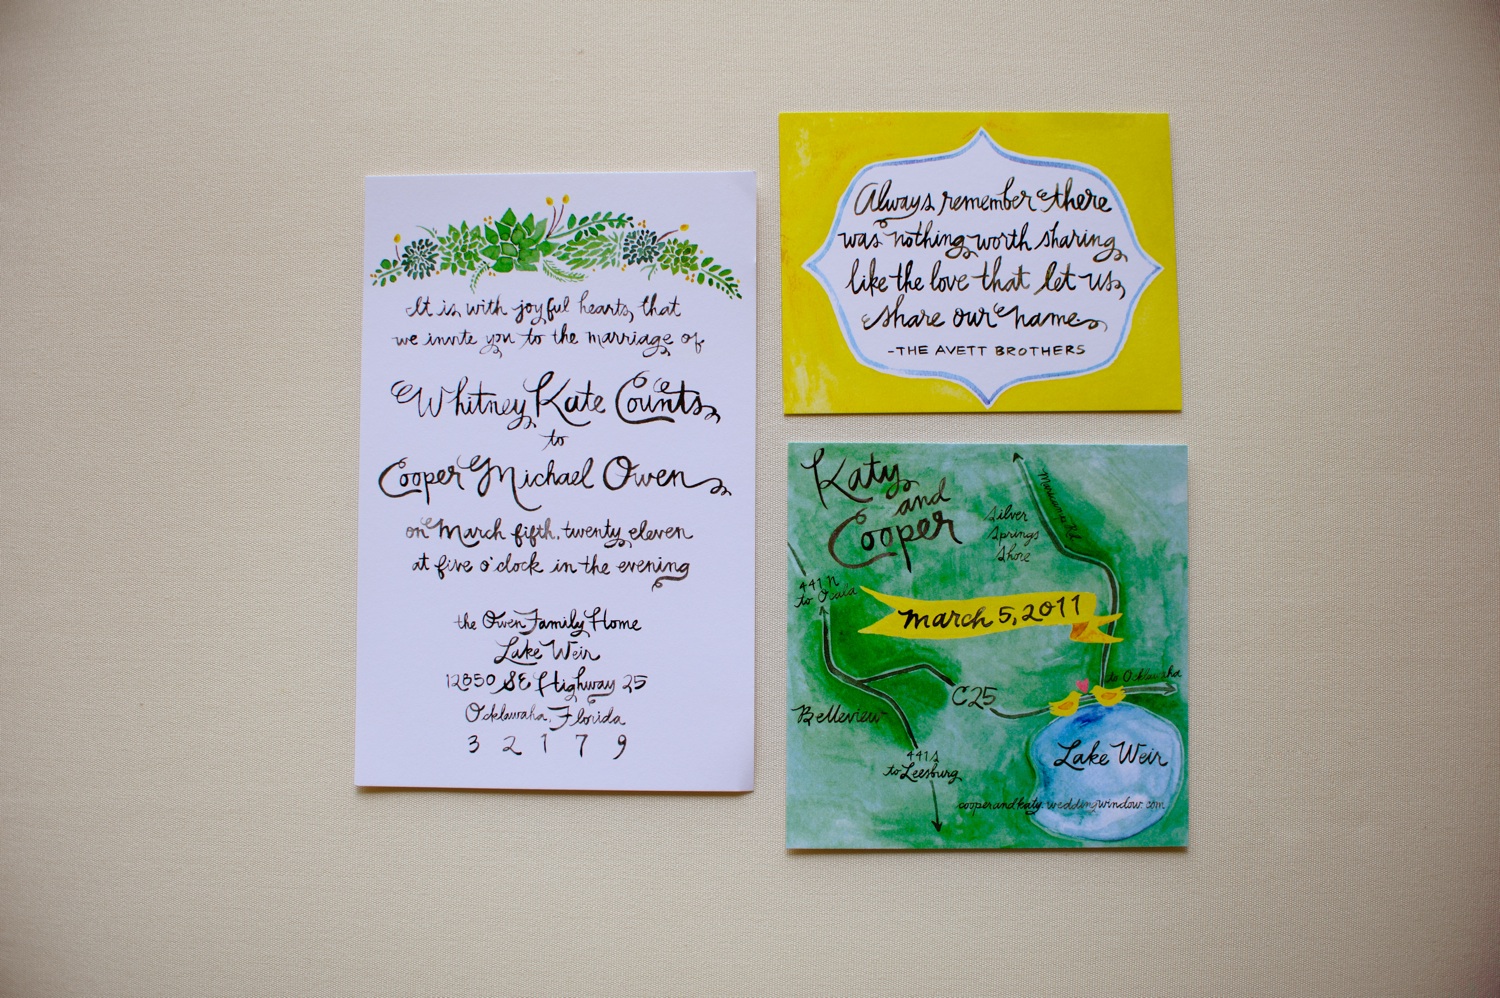 It is with joyful hearts that
we invite you to the marriage of
Whitney Kate Counts
to
Cooper Michael Owen
on March fifth, twenty eleven
at five o'clock in the evening
the Owen Family Home
Lake Weir
12850 SE Highway 25
Ocklawaha, Florida
3 2 1 7 9
Always remember there
was nothing worth sharing
like the love that let us
share our name
-THE AVETT BROTHERS
Katy
and
Cooper
Silver
Springs
Shore
Rd
441 N
to Ocala
March 5, 2011
to Ocklawaha
C25
Belleview
Lake Weir
441 S
to Leesburg
cooperandkaty.weddingwindow.com